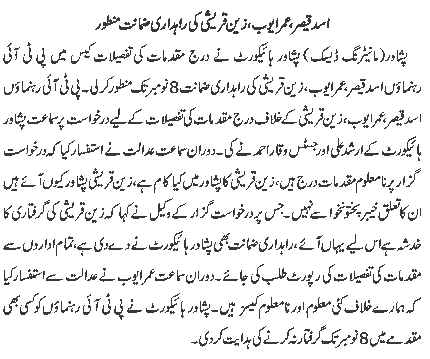 اسد قیصر، عمر ایوب، زین قریشی کی راہداری ضمانت منظور
پشاور (مانیٹرنگ ڈیسک) پشاور ہائیکورٹ نے درج مقدمات کی تفصیلات کیس میں پی ٹی آئی
رہنماؤں اسد قیصر، عمر ایوب، زین قریشی کی راہداری ضمانت 8 نومبر تک منظور کر لی۔ پی ٹی آئی رہنما
اسد قیصر، عمر ایوب، زین قریشی کے خلاف درج مقدمات کی تفصیلات کے لیے درخواست پر سماعت پشاور
ہائیکورٹ کے ارشد علی اور جسٹس وقار احمد نے کی۔ دوران سماعت عدالت نے استفسار کیا کہ درخواست
گزار پر نامعلوم مقدمات درج ہیں، زین قریشی کا پشاور میں کیا کام ہے، زین قریشی پشاور کیوں آئے ہیں
ان کا تعلق خیبر پختونخوا سے نہیں۔ جس پر درخواست گزار کے وکیل نے کہا کہ زین قریشی کی گرفتاری کا
خدشہ ہے اس لیے یہاں آئے، راہداری ضمانت بھی پشاور ہائیکورٹ نے دے دی ہے، تمام اداروں سے
مقدمات کی تفصیلات کی رپورٹ طلب کی جائے۔ دوران سماعت عمر ایوب نے عدالت سے استفسار کیا
کہ ہمارے خلاف کئی معلوم اور نامعلوم کیسز ہیں۔ پشاور ہائیکورٹ نے پی ٹی آئی رہنماؤں کو کسی بھی
مقدمے میں 8 نومبر تک گرفتار نہ کرنے کی ہدایت کر دی۔